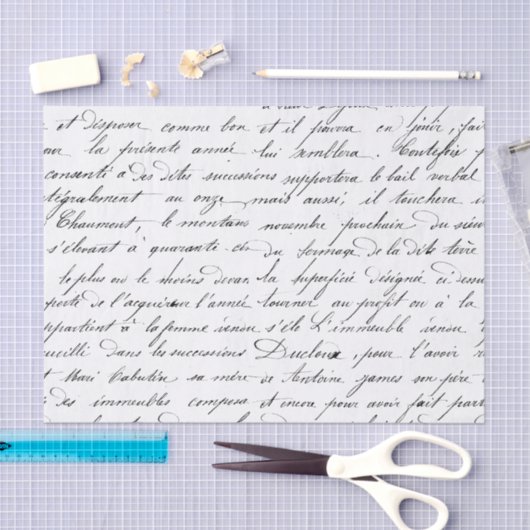 et disposer comme bon et il pourra en jouir, fai
la présente année lui semblera. Toutefois
consenti à des dites successions supportera le bail verbal
tégralement au onze mais aussi, il touchera
Chaumont, le montant novembre prochain du sieur
s'élevant à quarante du fermage de la dite terre
le plus ou le moins devan la superficie désignée ci dessu
porte de l'acquéreur l'année tourner au profit ou à la
ppartient à la femme vendu s'éle L'immeuble vendu
ueilli dans les successions Ducloux, pour l'avoir
Mari Cabutin sa mère de Antoine james son père
des immeubles composa et encore pour avoir fait part